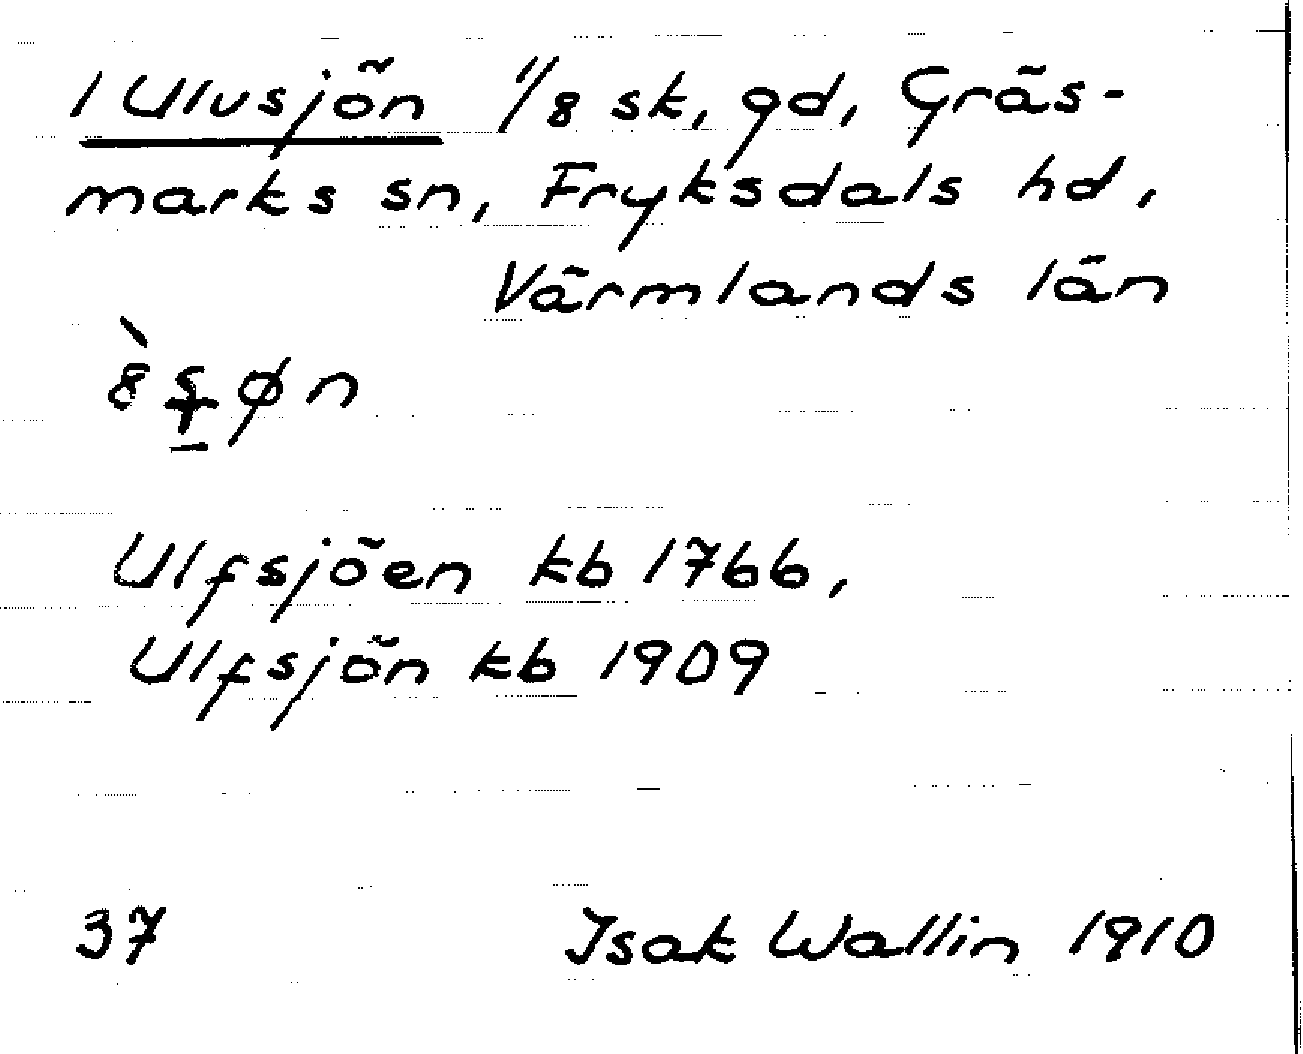 1 Ulvsjön 1/8 sk, gd, Gräs-
marks sn, Fryksdals hd,
Värmlands län
Ulfsjöen kb 1766,
Ulfsjön kb 1909
37 Isak Wallin 1910